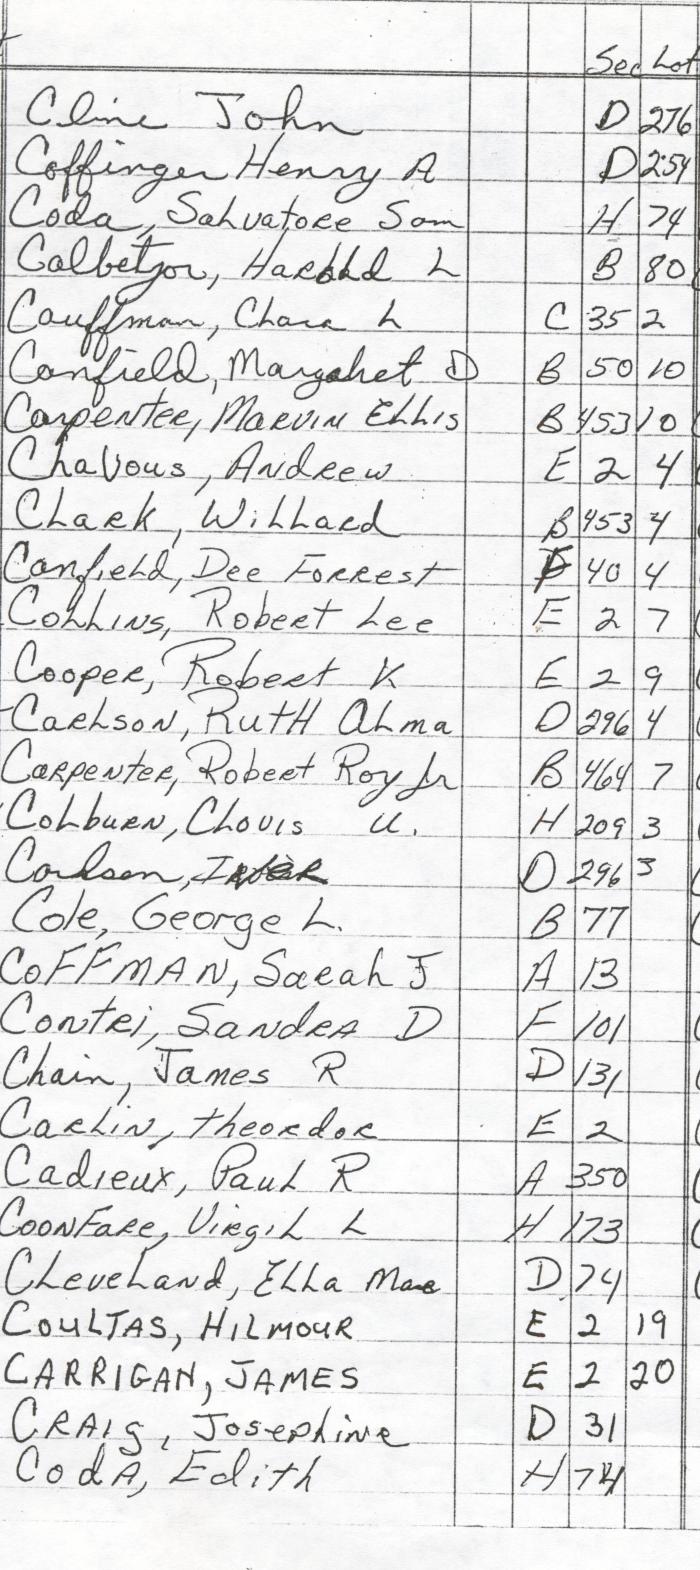 Sec Lot
Cline John D 276
Coffinger Henry A D 254
Coda, Salvatore Sam H 74
Harold L B 80
Cauffman, Clara L C 35 2
Canfield, Margaret D B 50 10
Carpenter, Marvin Ellis B 453 10
Chavous, Andrew E 2 4
Clark, Willard B 453 4
Canfield, Dee Forrest 40 4
Collins, Robert Lee E 2 7
Cooper, Robert K E 2 9
Carlson, Ruth Alma D 296 4
Carpenter, Robert Roy Jr B 464 7
Colburn, Clovis U. H 209 3
Carlson, D 296 3
Cole, George L. B 77
COFFMAN, Sarah J A 13
Contri, Sandra D F 101
Chain, James R D 131
Carlin, theordor E 2
Cadieux, Paul R A 350
Coonfare, Virgil L H 173
Cleveland, Ella Mae D 74
COULTAS, HILMOUR E 2 19
CARRIGAN, JAMES E 2 20
CRAIG, Josephine D 31
Coda, Edith H 74